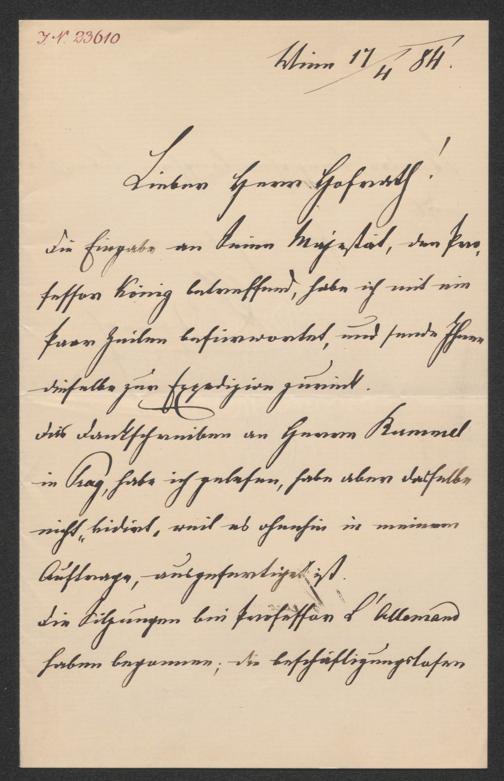 J. N. 23610
Wien 17/4 84.
Lieber Herr Hofrath!
Die Eingabe an Seine Majestät, den Pro-
fessor König betreffend, habe ich mit ein
Paar Zeilen befürwortet, und sende Ihnen
dieselbe zur Expedizion zurück.
Das Dankschreiben an Herrn Kummel
in Prag, habe ich gelesen, habe aber dasselbe
nicht „vidirt, weil es ohnehin in meinem
Auftrage, ausgefertiget ist.
Die Sitzungen bei Professor L'Allemand
haben begonnen; die beschäftigungslosen